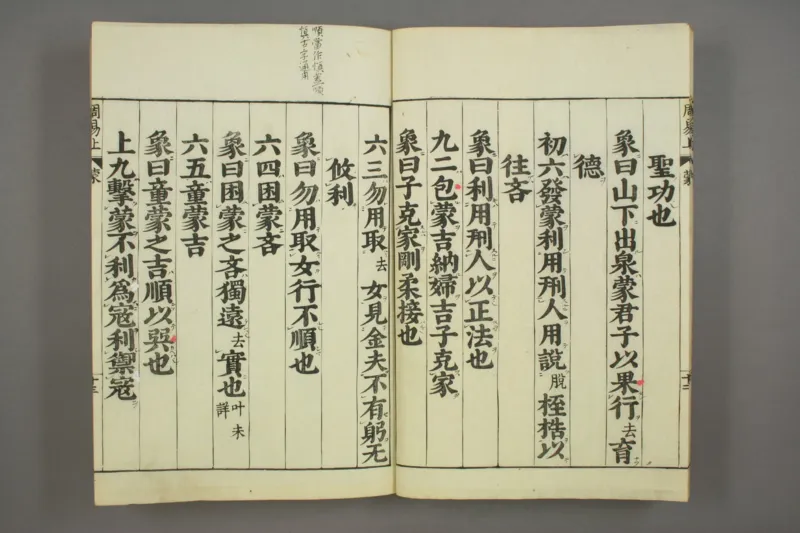 聖功也
象曰山下出泉蒙君子以果行去育
德
初六發蒙利用刑人用說脫桎梏以
往吝
象曰利用刑人以正法也
九二包蒙吉納婦吉子克家
象曰子克家剛柔接也
六三勿用取去女見金夫不有躬无
攸利
象曰勿用取女行不順也
六四困蒙吝
象曰困蒙之吝獨遠去實也叶未詳
六五童蒙吉
象曰童蒙之吉順以巽也
上九擊蒙不利為寇利禦寇
周易上
蒙
十二
周易上
蒙
十三